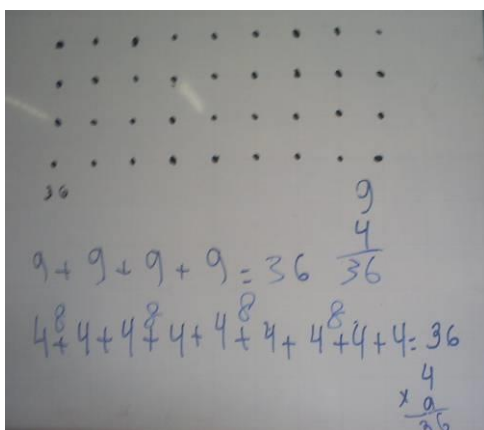 36
9
4
36
9 + 9 + 9 + 9 = 36
8 8 8 8
4 + 4 + 4 + 4 + 4 + 4 + 4 + 4 + 4 = 36
4
× 9
36